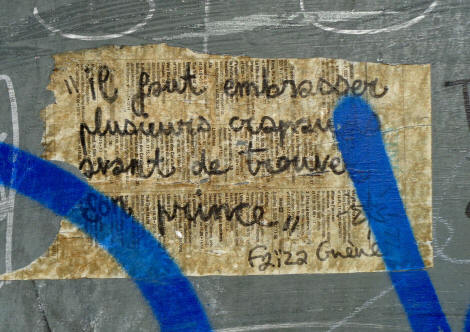 "il faut embrasser
plusieurs crapauds
avant de trouver
son prince"
Faïza Guène